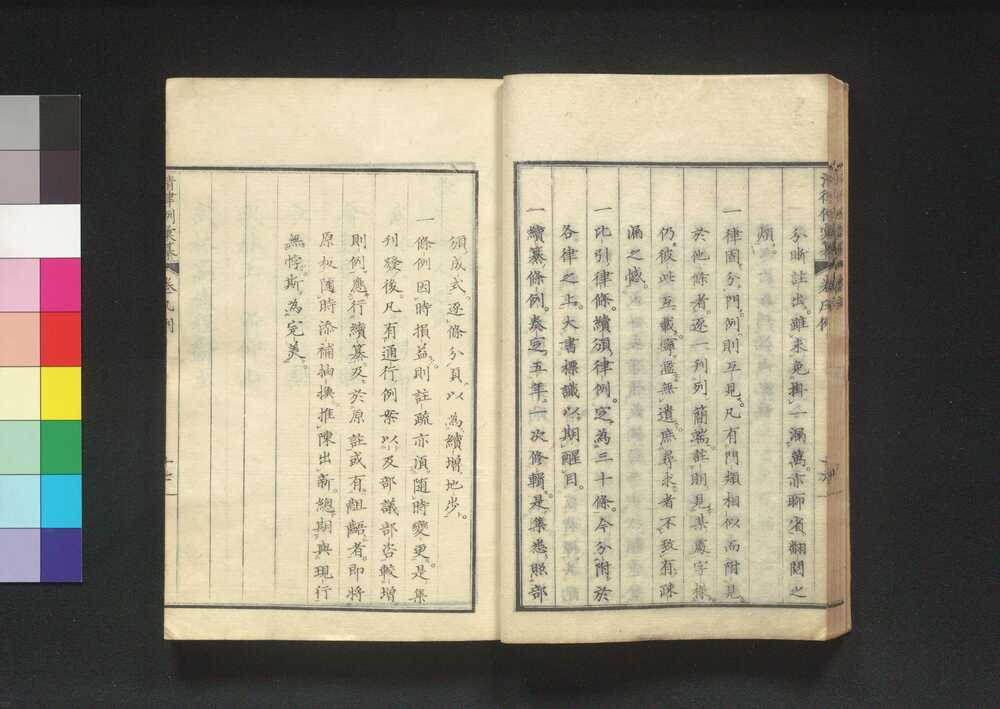 分晰註出。雖未免掛一漏萬。亦聊資翻閱之
煩。
一律固分門。例則互見。凡有門類相似而附見
於他條者。逐一列列簡端。註明見某處字樣。
仍彼此互載。寧濫無遺。庶尋求者不致有疎
漏之憾。
一比引律條。續頒律例。定為三十條。今分附於
各律之上。大書標識。以期醒目。
一續纂條例。奏定五年。一次修輯。是集悉照部
頒成式。逐條分頁。以為續增地步。
一條例因時損益。則註疏亦須隨時變更。是集
刊發後。凡有通行例案。以及部議部咨較增
則例。應行續纂。及於原註或有齟齬者。即將
原板隨時添補抽換。推陳出新。總期與現行
無悖。斯為完美。
清律例彙纂 卷凡例